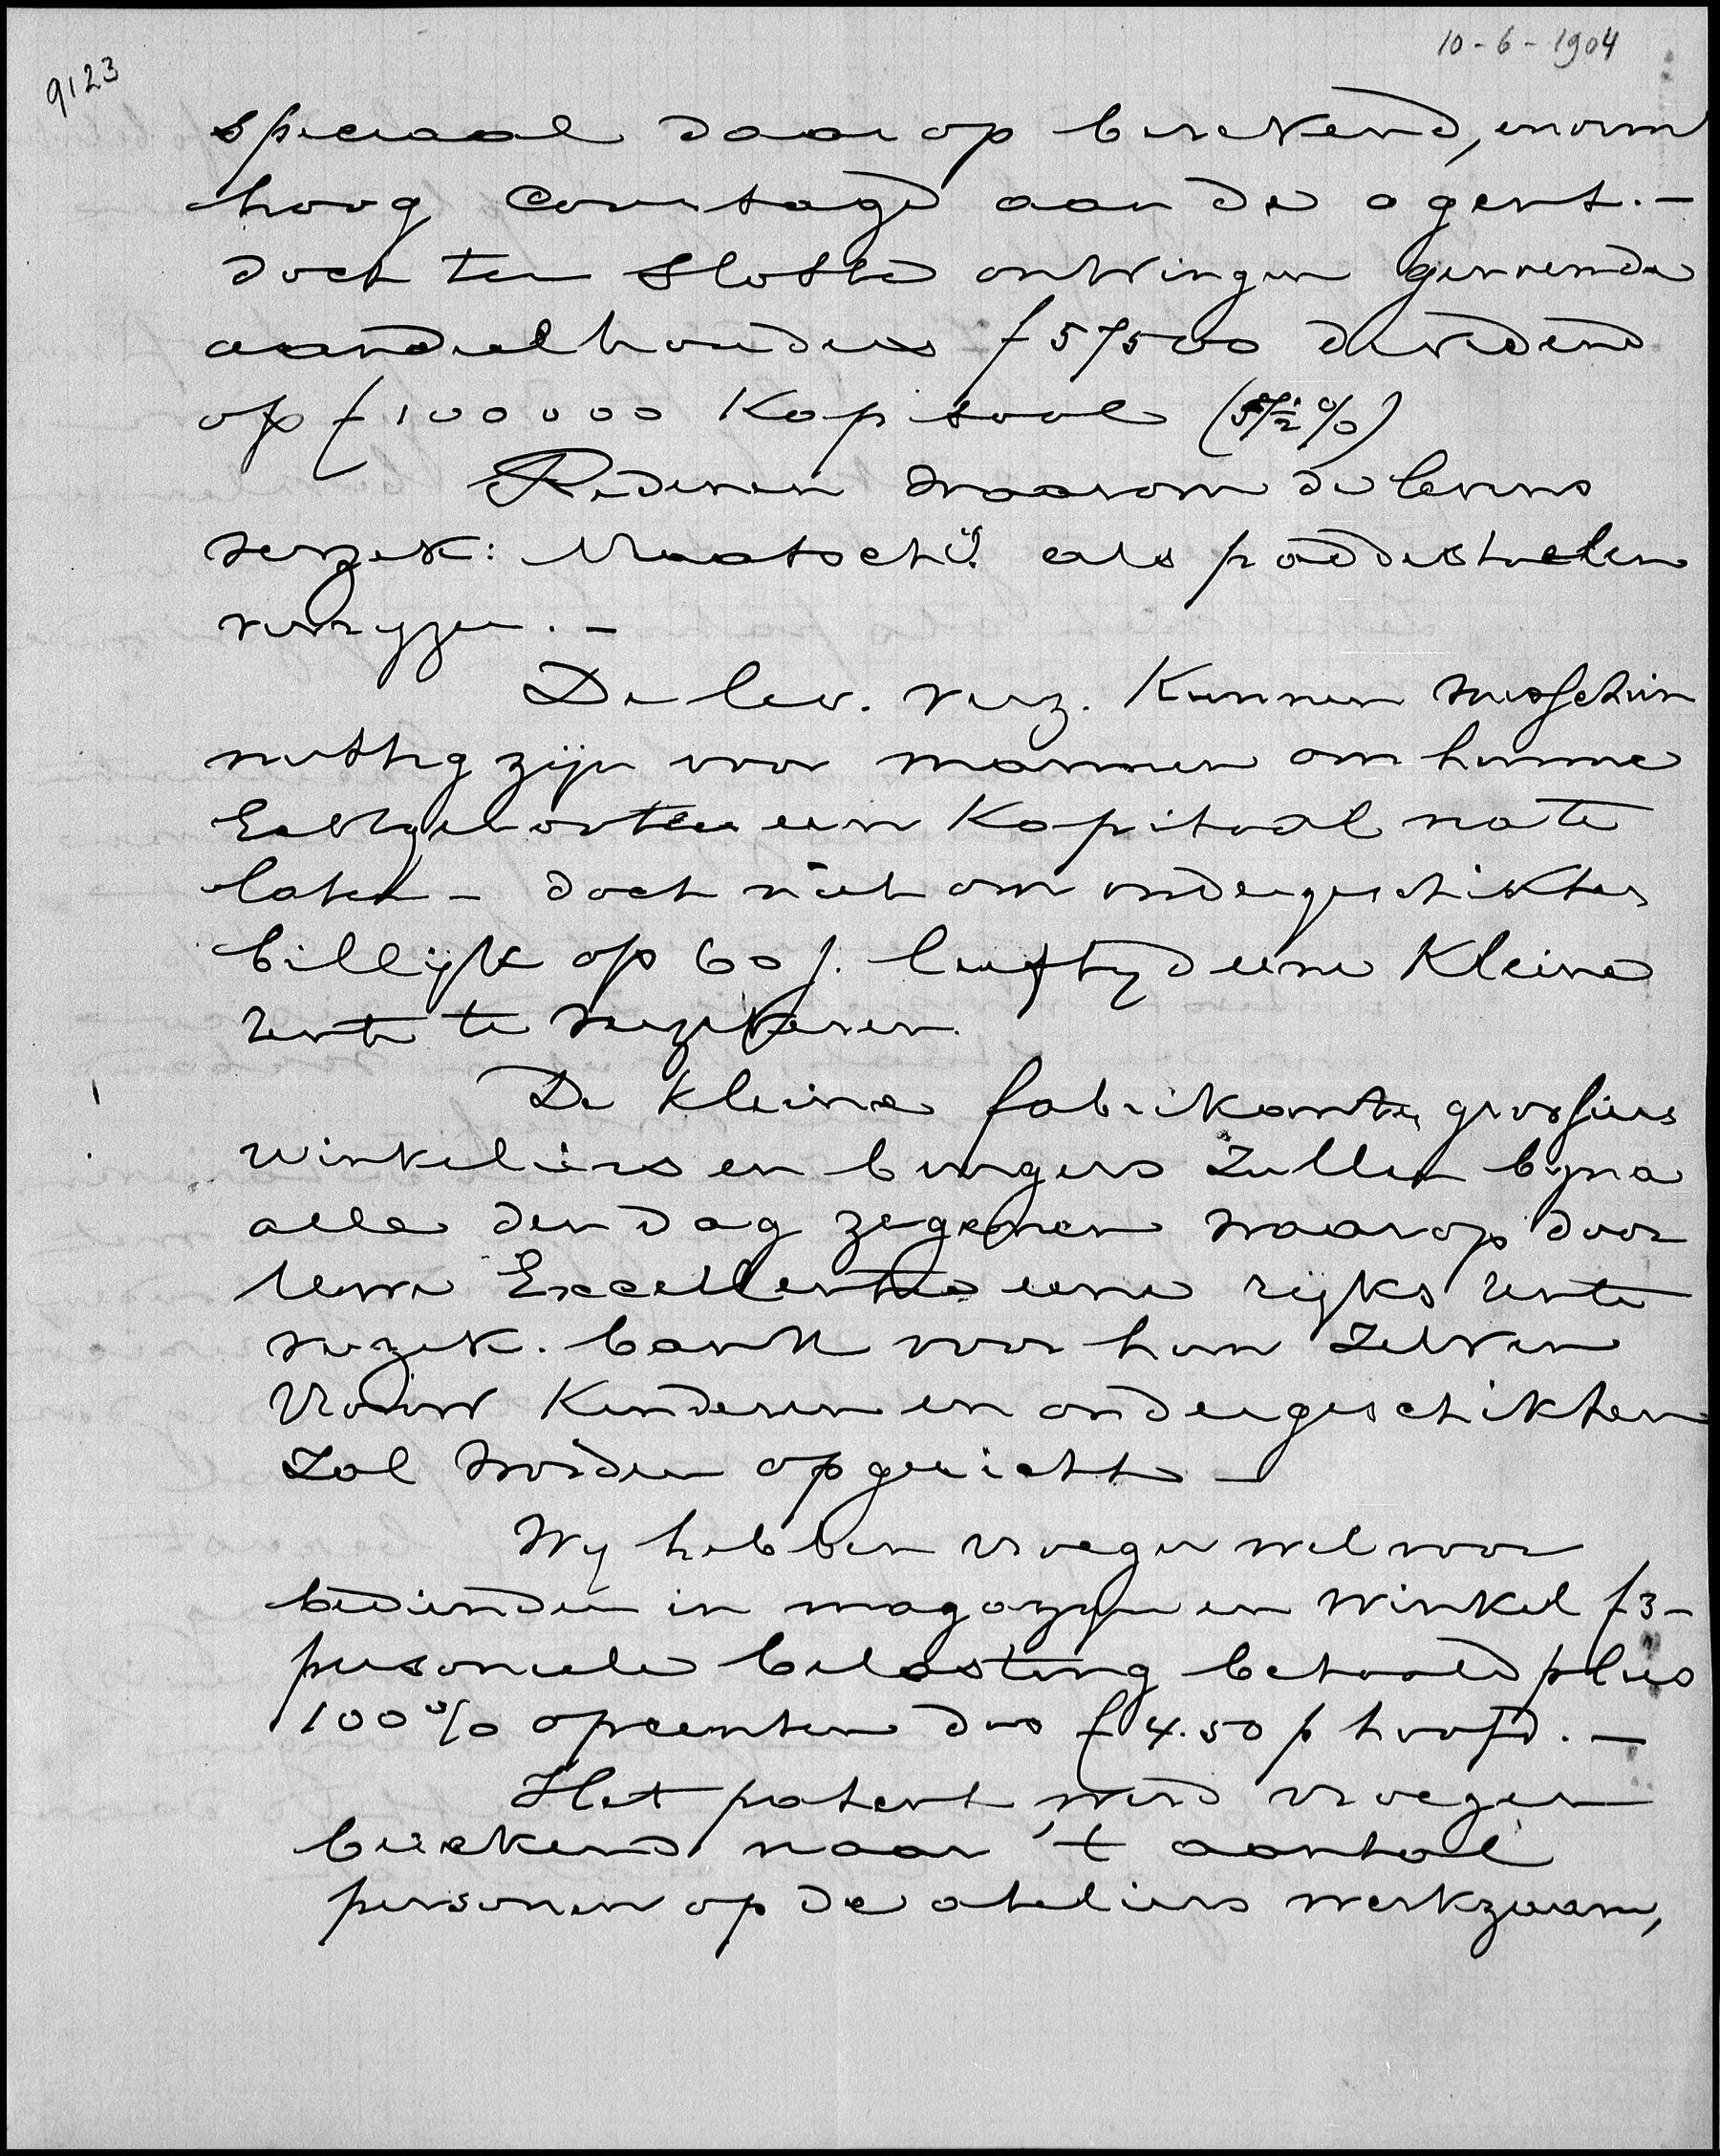 10-6-1904
9123
speciaal daarop berekend, enorm
hoog courtagd aan de agent. -
doch ten slotte ontvingen genoemde
aandeelhouders f 57500 dividend
op f 100000 Kapitaal (57½%)
Redenen waarom de levens
verzek: Maatschij. als paddestoelen
verryzen. -
De lev. verz. Kunnen misschien
nuttig zijn voor mannen om hunne
Echtgenooten een Kapitaal na te
laten - doch niet om ondergeschikten
billijk op 60 j. leeftyd eene Kleine
rente te verzekeren.
De Kleine fabrikanten, grossiers
winkeliers en burgers zullen byna
alle den dag zegenen waarop door
Uwe Excellentie eene rijks rente
verzek. bank voor hun zelven
Vrouw Kinderen en ondergeschikten
zal worden opgericht -
Wy hebben vroeger wel voor
bedienden in magazyn en winkel f3-
personeele belasting betaald plus
100% opcenten dus f 4.50 p hoofd. -
Het patent werd vroeger
berekend naar 't aantal
personen op de ateliers werkzaam,